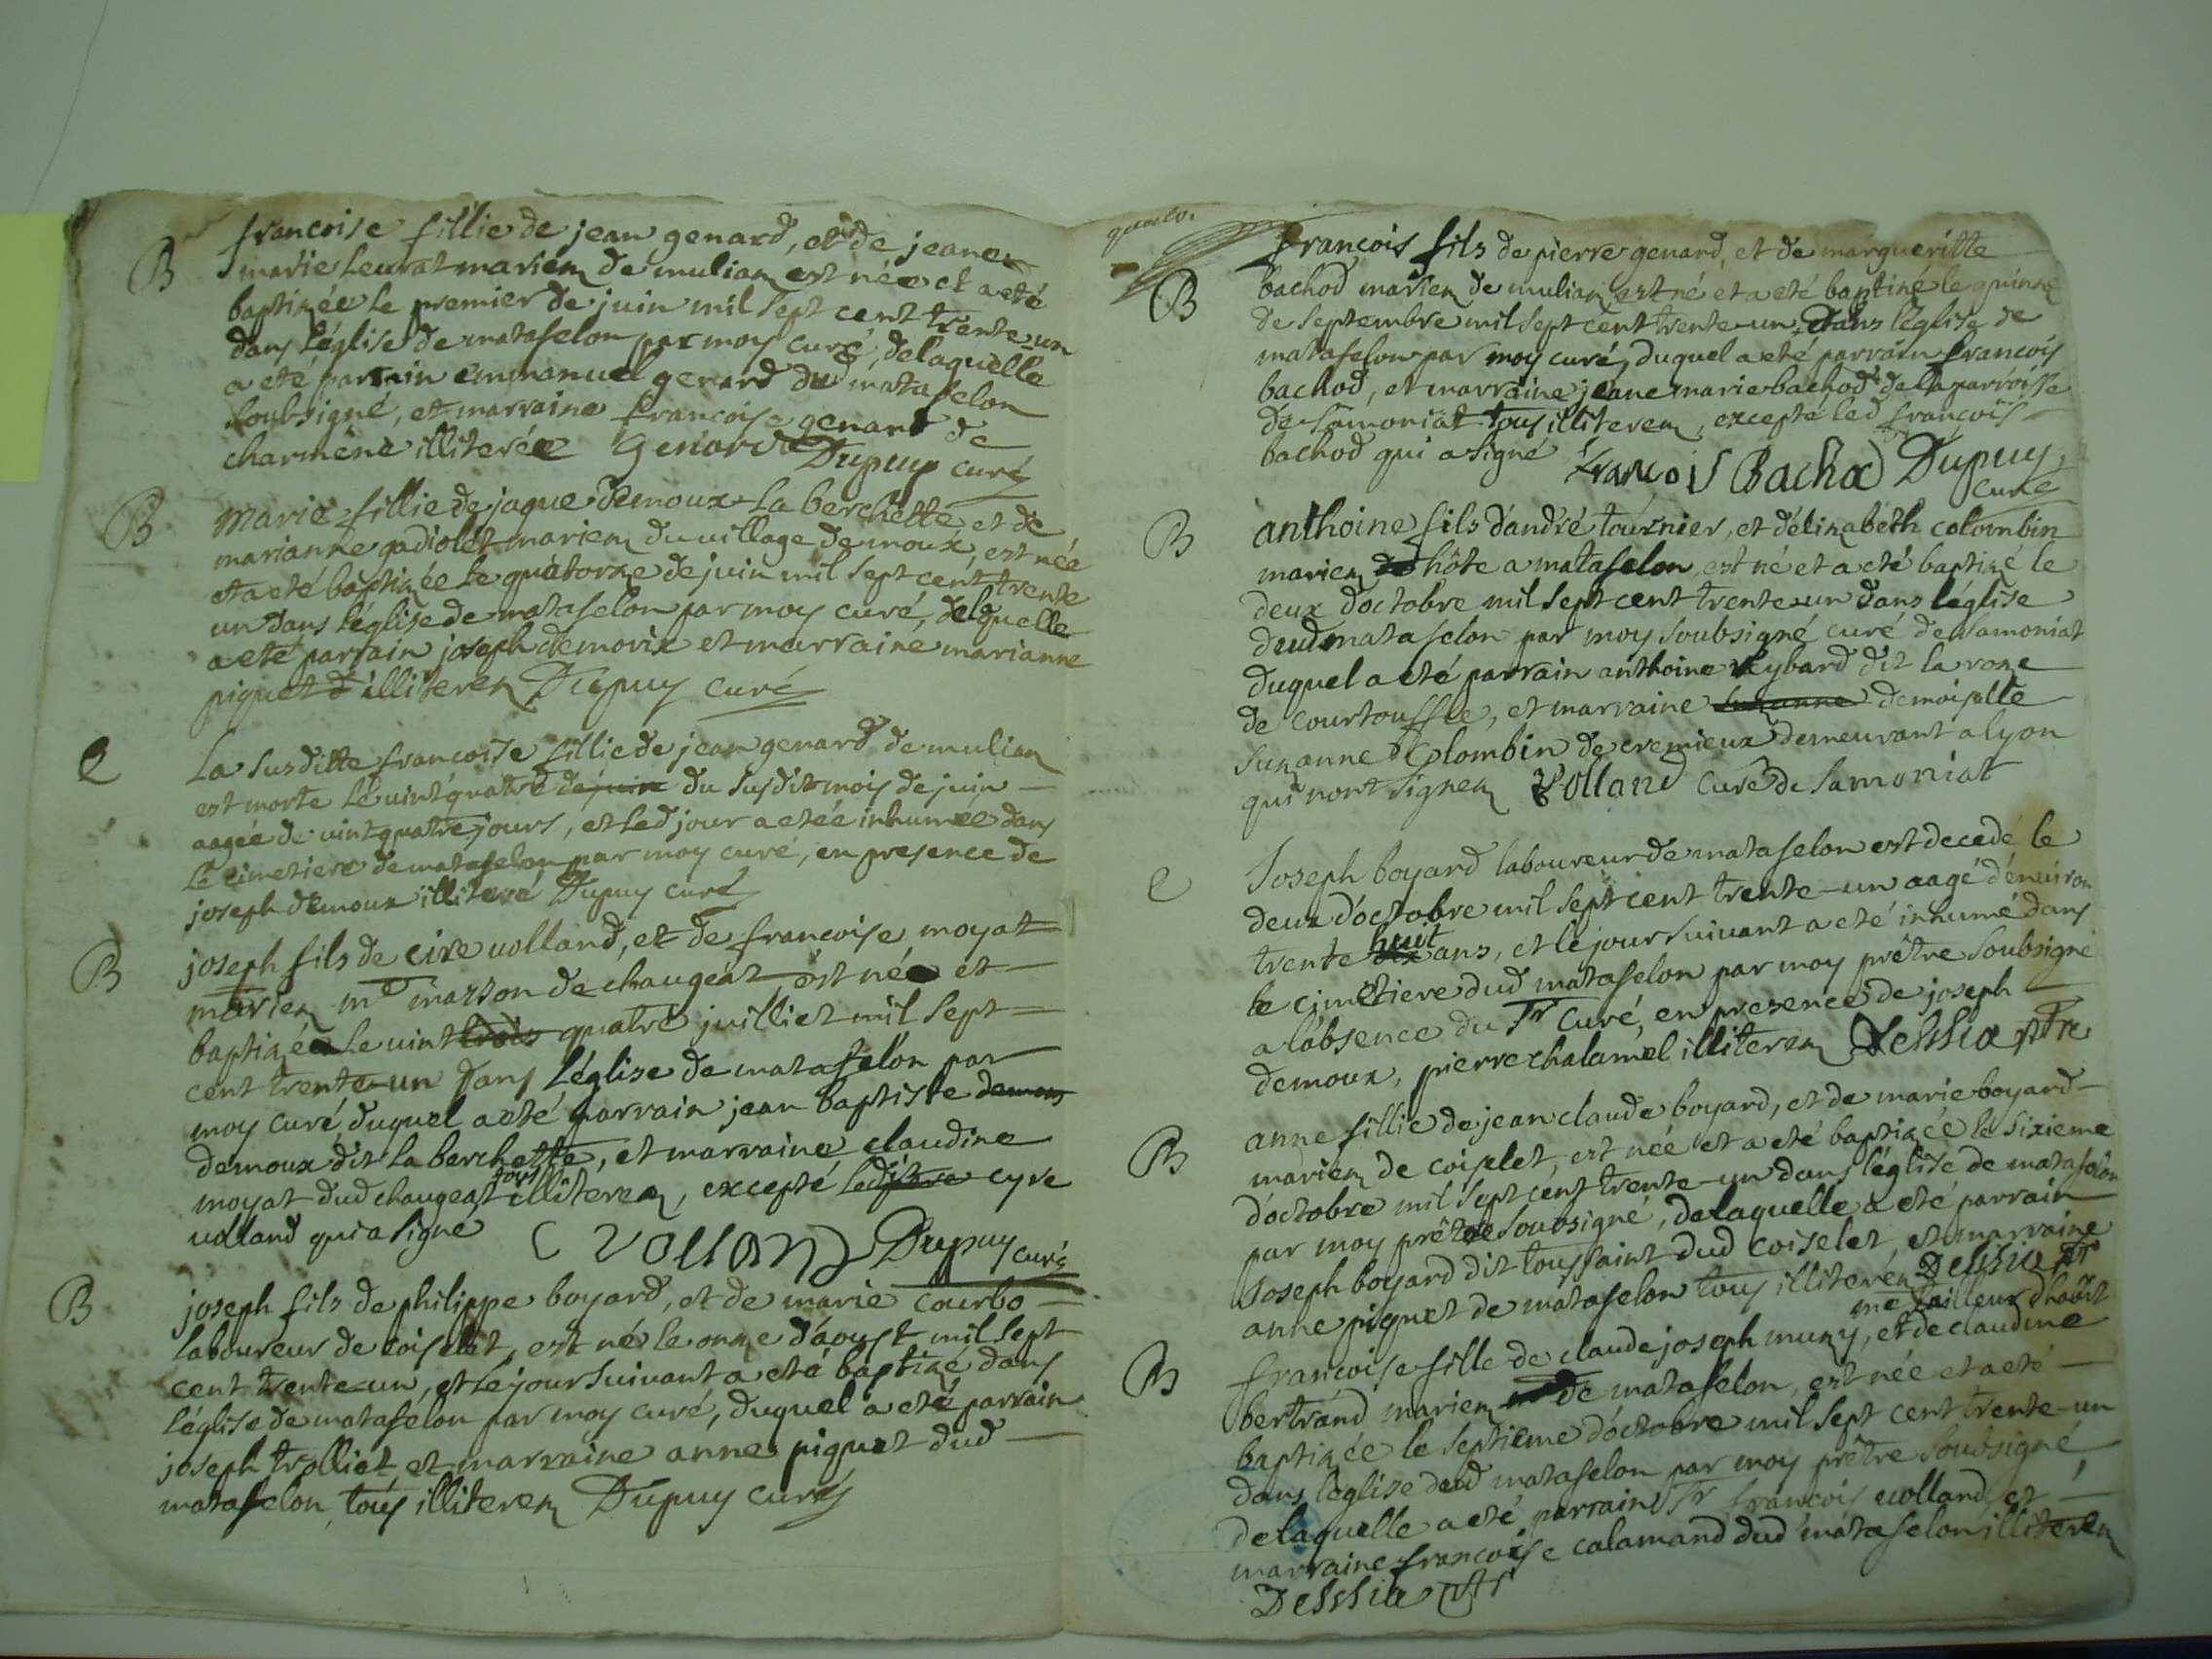 B
francoise fillie de jean genard, et de jeane
marie leurat mariez de mulian est née et a eté
baptizée le premier de juin mil sept cent trente-un
dans l'église de mataselon par moy curé, delaquelle
a eté parrain emmanuel genard dud mataselon
soubsigné, et marraine francoise genard de
charmène illiterée Genard Dupuy curé
B
Marie fillie de jaque demoux la berchette, et de
marianne gadiolet mariez du village de moux, est née
et a eté baptizée le quatorze de juin mil sept cent trente
un dans l'église de mataselon par moy curé, delaquelle
a eté parrain joseph demoux et marraine marianne
piquet d illiterez Dupuy curé
e
La susditte francoise fillie de jean genard de mulian
est morte le vintquatre de juin du susdit mois de juin
aagée de vintquatre jours, et led jour a etée inhumée dans
le cimetiere de mataselon par moy curé, en presence de
joseph demoux illiteré Dupuy curé
B
joseph fils de cire volland, et de francoise moyat
mariez me masson de changeat est née et
baptizée le vint trois quatre juilliet mil sept
cent trente-un dans l'église de mataselon par
moy curé, duquel a eté parrain jean baptiste demoux
demoux dit la berchette, et marraine claudine
moyat dud changeat tous illiterez, excepté led cyre
volland qui a signé C Volland Dupuy curé
B
joseph fils de philippe boyard, et de marie courbo
laboureur de coiselet, est né le onze d'aoust mil sept
cent trente-un, et le jour suivant a eté baptizé dans
l'église de mataselon par moy curé, duquel a eté parrain
joseph trolliet et marraine anne piquet dud
mataselon tous illiterez Dupuy curé
B
francois fils de pierre genard, et de margueritte
bachod mariez de mulian est né et a eté baptizé le quinze
de septembre mil sept cent trente-un dans l'église de
mataselon par moy curé, duquel a eté parrain francois
bachod, et marraine jeane marie bachod de la parroisse
de samoniat tous illiterez, excepté led francois
bachod qui a signé francois Bachod Dupuy
curé
B
anthoine fils d'andré tournier, et d'elizabeth colombin
mariez de hôte a mataselon, est né et a eté baptizé le
deux d'octobre mil sept cent trente-un dans l'église
dud mataselon par moy soubsigné curé de samoniat
duquel a eté parrain anthoine reybard dit la roze
de courtouffle, et marraine suzanne demoiselle
suzanne Colombin de cremieux demeurant a lyon
qui n'ont signez Volland curé de Samoniat
e
Joseph boyard laboureur de mataselon est decedé le
deux d'octobre mil sept cent trente-un aagé d'environ
trente huit ans, et le jour suivant a eté inhumé dans
le cimetiere dud mataselon par moy prêtre soubsigné
a l'absence du Sr curé, en presence de joseph
demoux, pierre chalamel illiterez Dessia ptre
B
anne fillie de jean claude boyard, et de marie boyard
mariez de coiselet, est née et a eté baptizée le sixieme
d'octobre mil sept cent trente-un dans l'église de mataselon
par moy prêtre soubsigné, delaquelle a eté parrain
Joseph boyard dit toussaint dud coiselet, et marraine
anne piquet de mataselon tous illiterez Dessia ptr
B
me tailleur d'habit
francoise fille de claude joseph muny, et de claudine
bertrand mariez de mataselon, est née et a eté
baptizée le septieme d'octobre mil sept cent trente-un
dans l'église dud mataselon par moy prêtre soubsigné,
delaquelle a eté parrain Sr francois volland, et
marraine francoise calamand dud mataselon illiterez
Dessia ptr